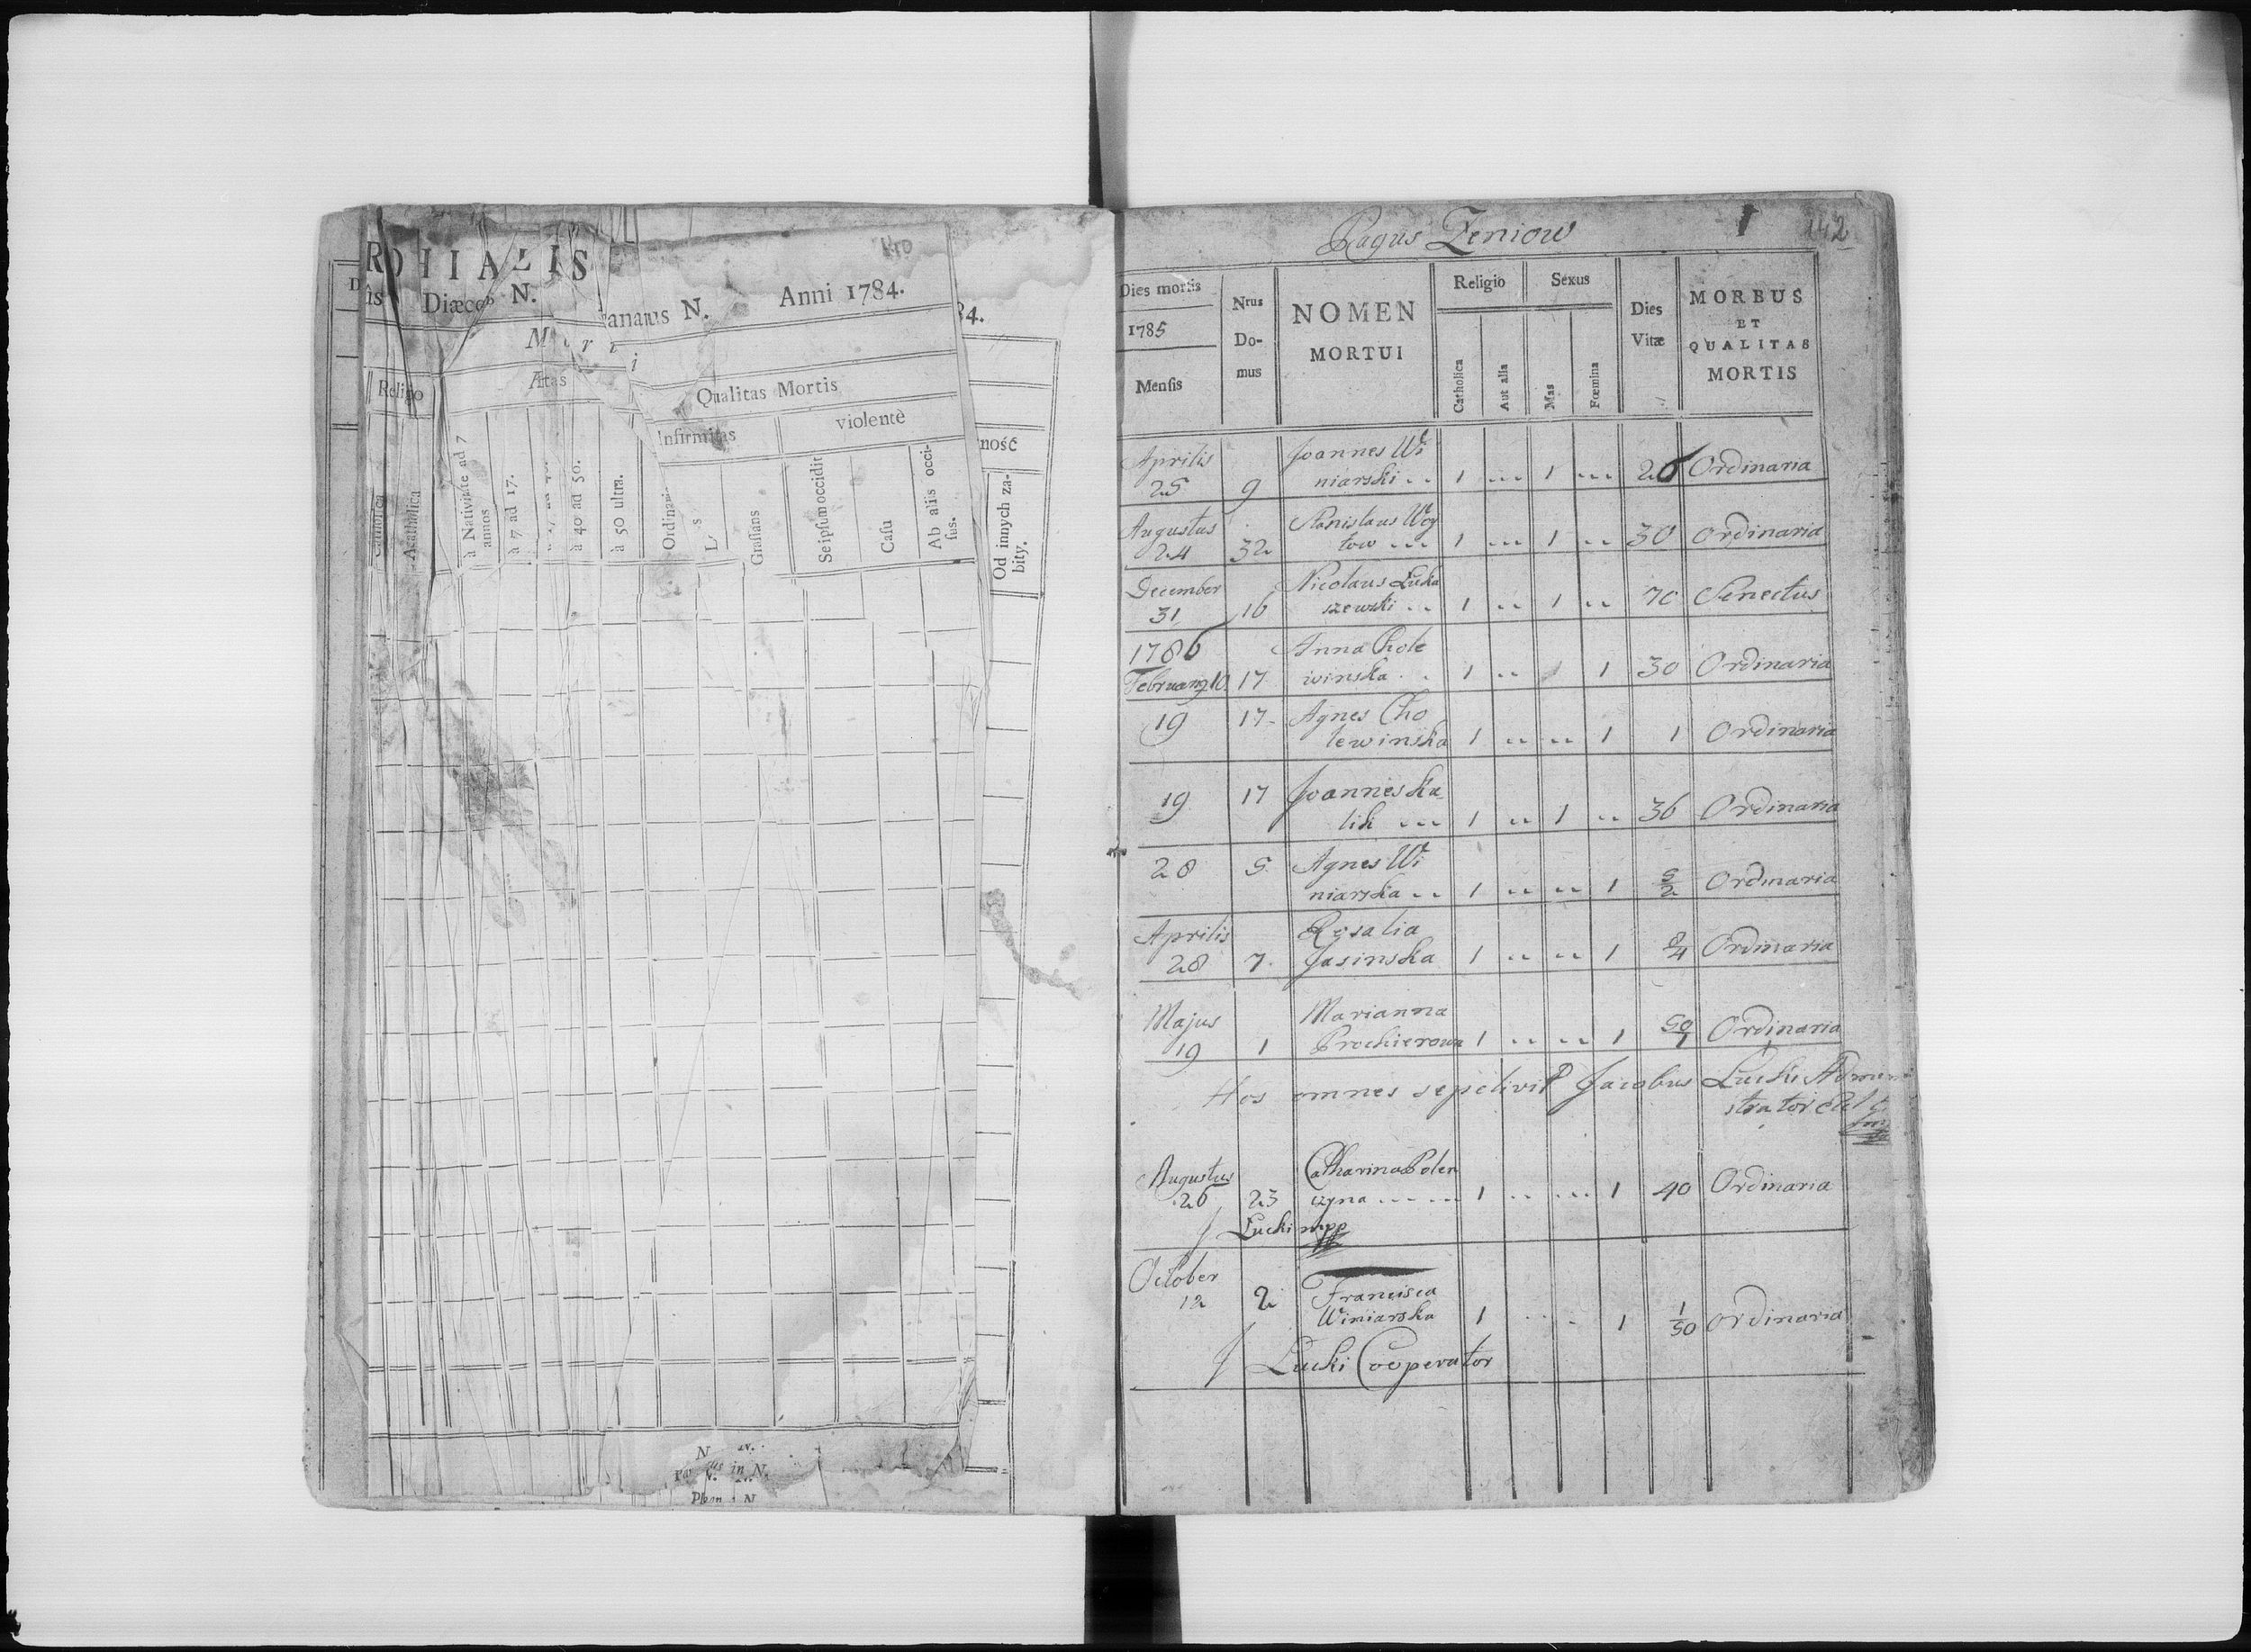 140
ROHIALIS
Diæces N.
anatus N. Anni 1784.
84.
Religio
Ætas
Qualitas Mortis
Infirmitas
violentè
Catholica
Acatholica
à Nativitate ad 7 annos
à 7 ad 17.
à 40 ad 50.
à 50 ultra.
Ordinari
Graſsans
Seipſum occidit
Caſu
Ab aliis occi-
ſus.
ność
Od innych za-
bity.
N. N.
in N.
N
Pagus Zeniow
1 142
Dies mortis
1785
Menſis
Nrus
Do-
mus
NOMEN
MORTUI
Religio
Catholica
Aut alia
Sexus
Mas
Fœmina
Dies
Vitæ
MORBUS
ET
QUALITAS
MORTIS
Aprilis Joannes Wi
25 9 niarski .. 1 ... 1 ... 26 Ordinaria
Augustus Stanislaus Woy
24 32 tow ... 1 ... 1 .. 30 Ordinaria
December Nicolaus Luka
31 16 szewski .. 1 .. 1 .. 70 Senectus
1786 Anna Chole
Februarij 10 17 winska . . 1 .. 1 1 30 Ordinaria
19 17 Agnes Cho
lewinska 1 .. .. 1 1 Ordinaria
19 17 Joannes Ka
lik ... 1 .. 1 .. 36 Ordinaria
28 5 Agnes Wi
niarska .. 1 .. .. 1 5/2 Ordinaria
Aprilis Rosalia
28 7. Jasinska 1 .. .. 1 Ordinaria
Majus Marianna
19 1 1 .. .. 1 Ordinaria
Hos omnes sepelivit Jacobus Lucki Admini
strator
Augustus Catharina Polen
26 23 czyna ...... 1 .. ... 1 40 Ordinaria
J Lucki mpp
October Francisca
12 2 Winiarska 1 .. . 1 1/50 Ordinaria
J Lucki Cooperator